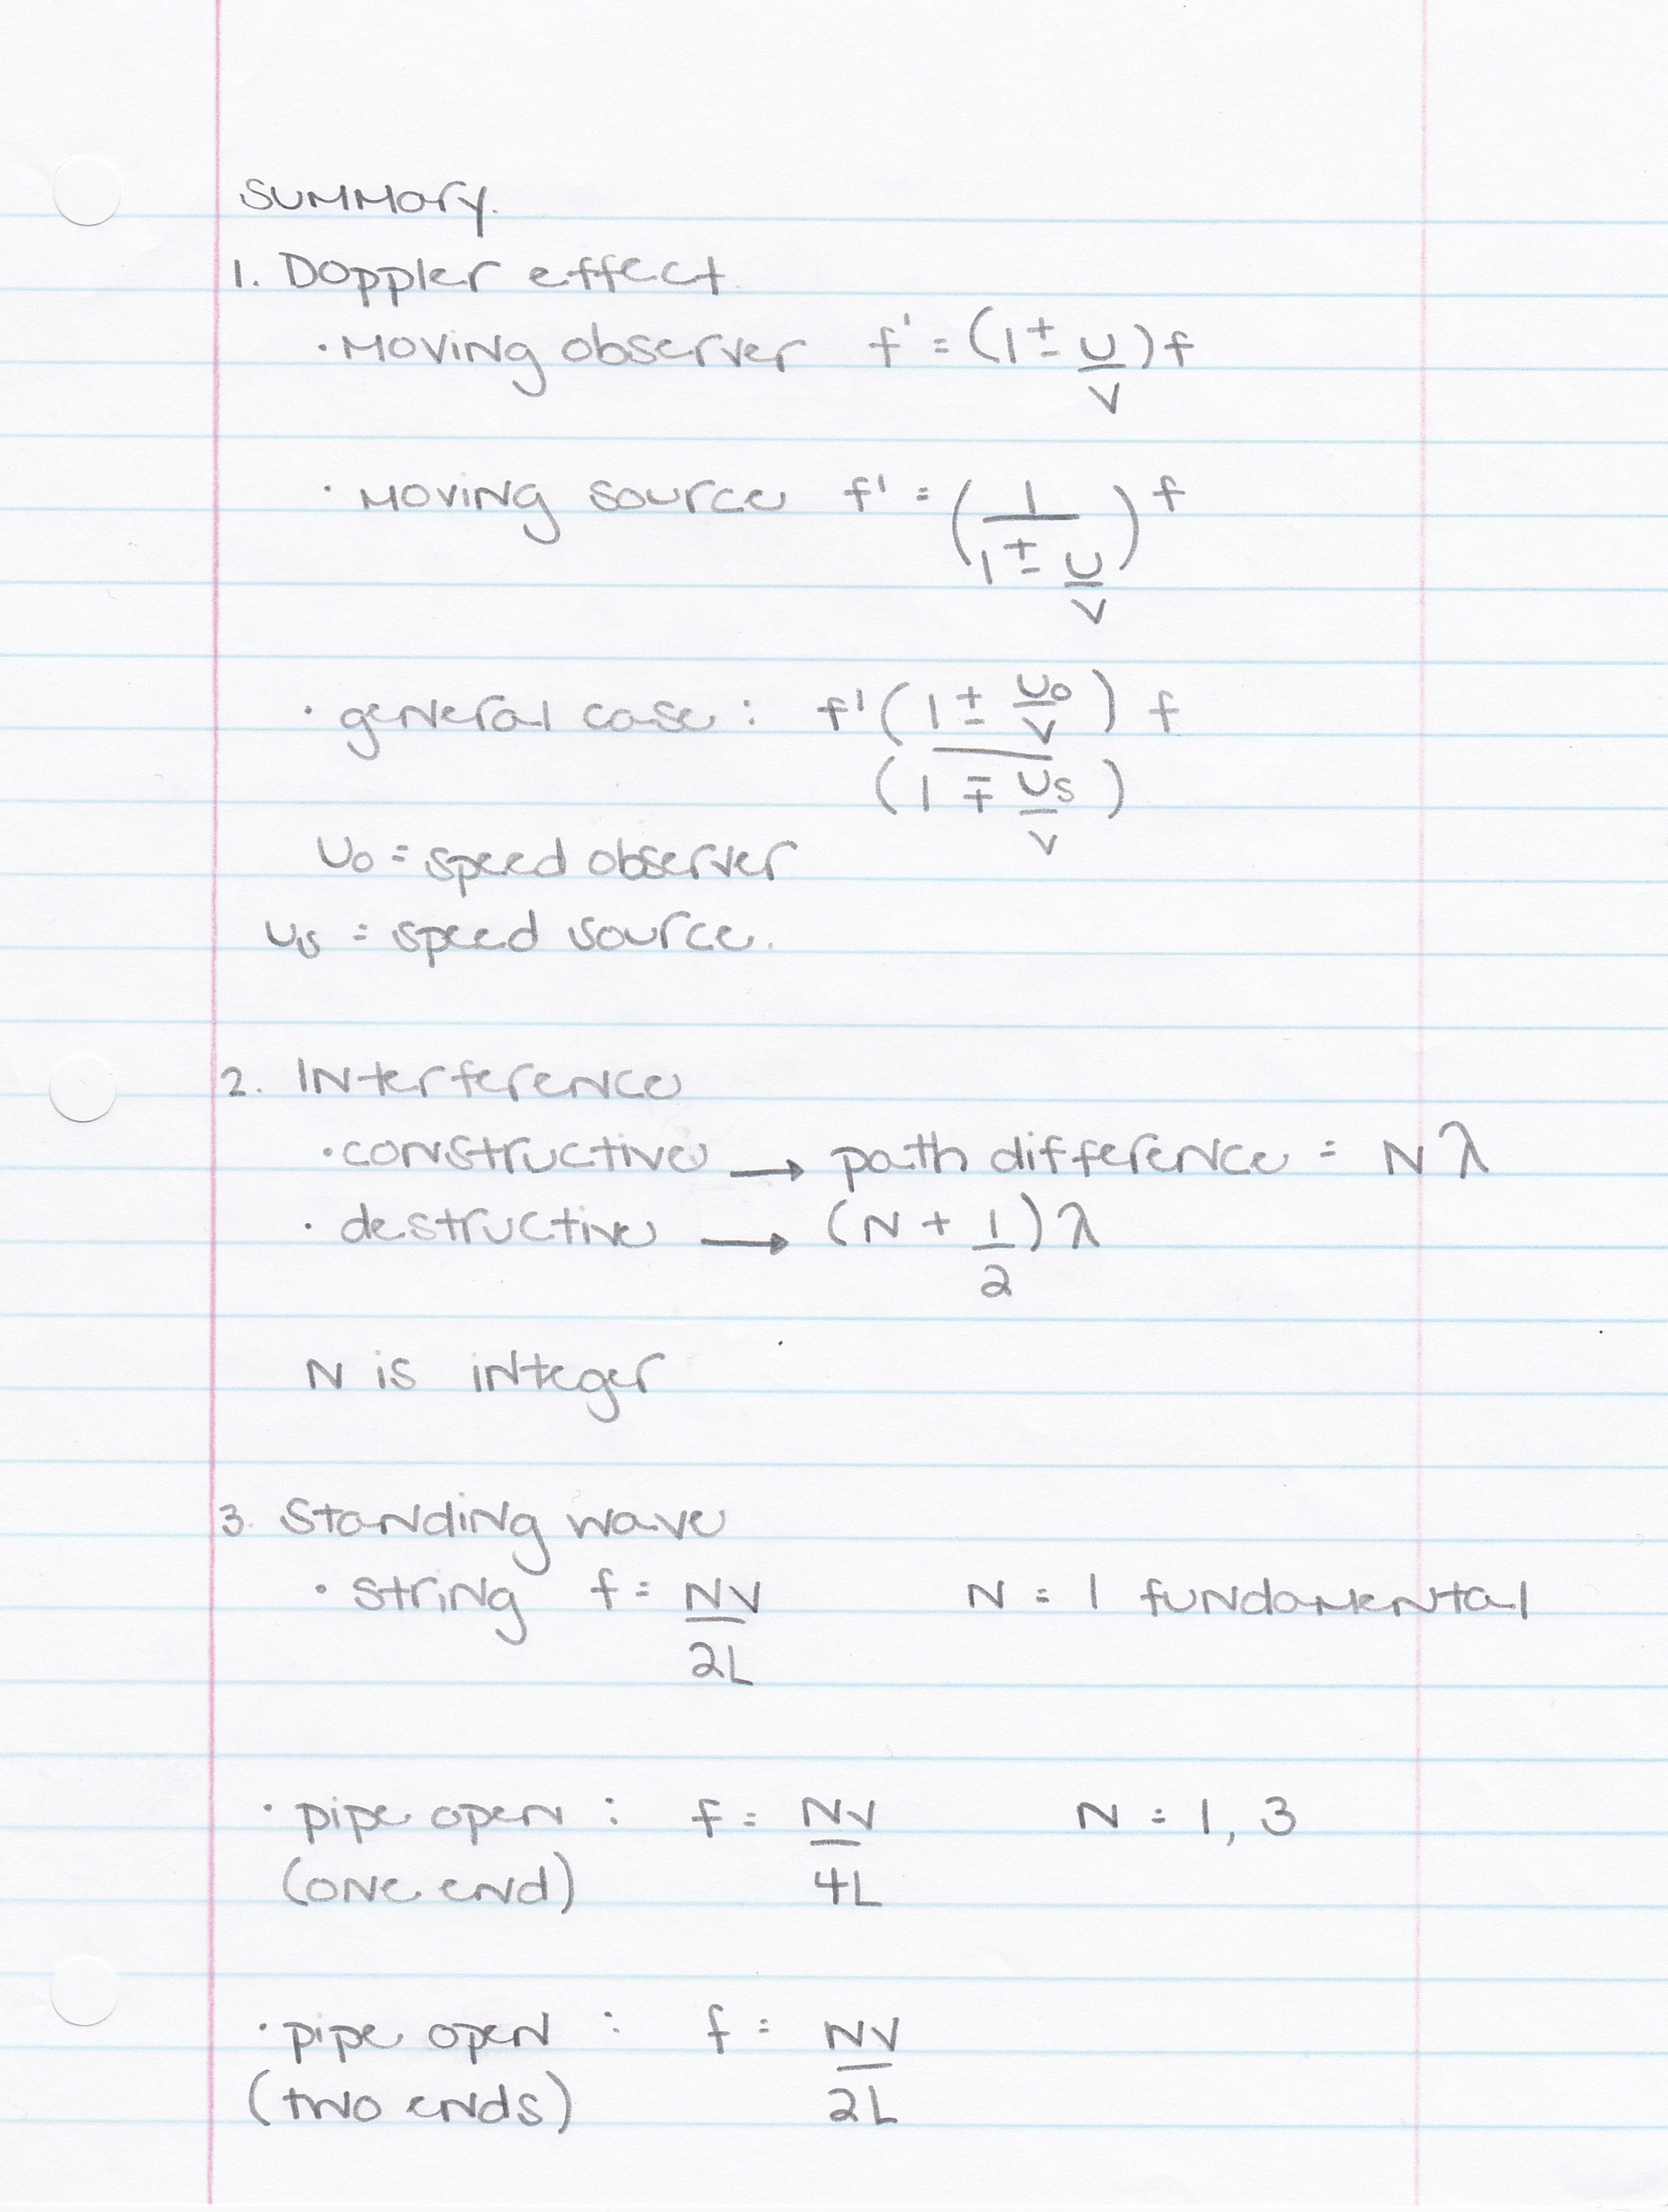 Summary.
1. Doppler effect.
· Moving observer f' = (1 ± u/v) f
· Moving source f' = (1/(1 ± u/v)) f
· general case : f' (1 ± uo/v) f
(1 ∓ us/v)
uo = speed observer
us = speed source.
2. Interference
· constructive → path difference = Nλ
· destructive → (N + 1/2) λ
N is integer
3. Standing wave
· string f = Nv/2L N = 1 fundamental
· pipe open : f = Nv/4L N = 1, 3
(one end)
· pipe open : f = Nv/2L
(two ends)